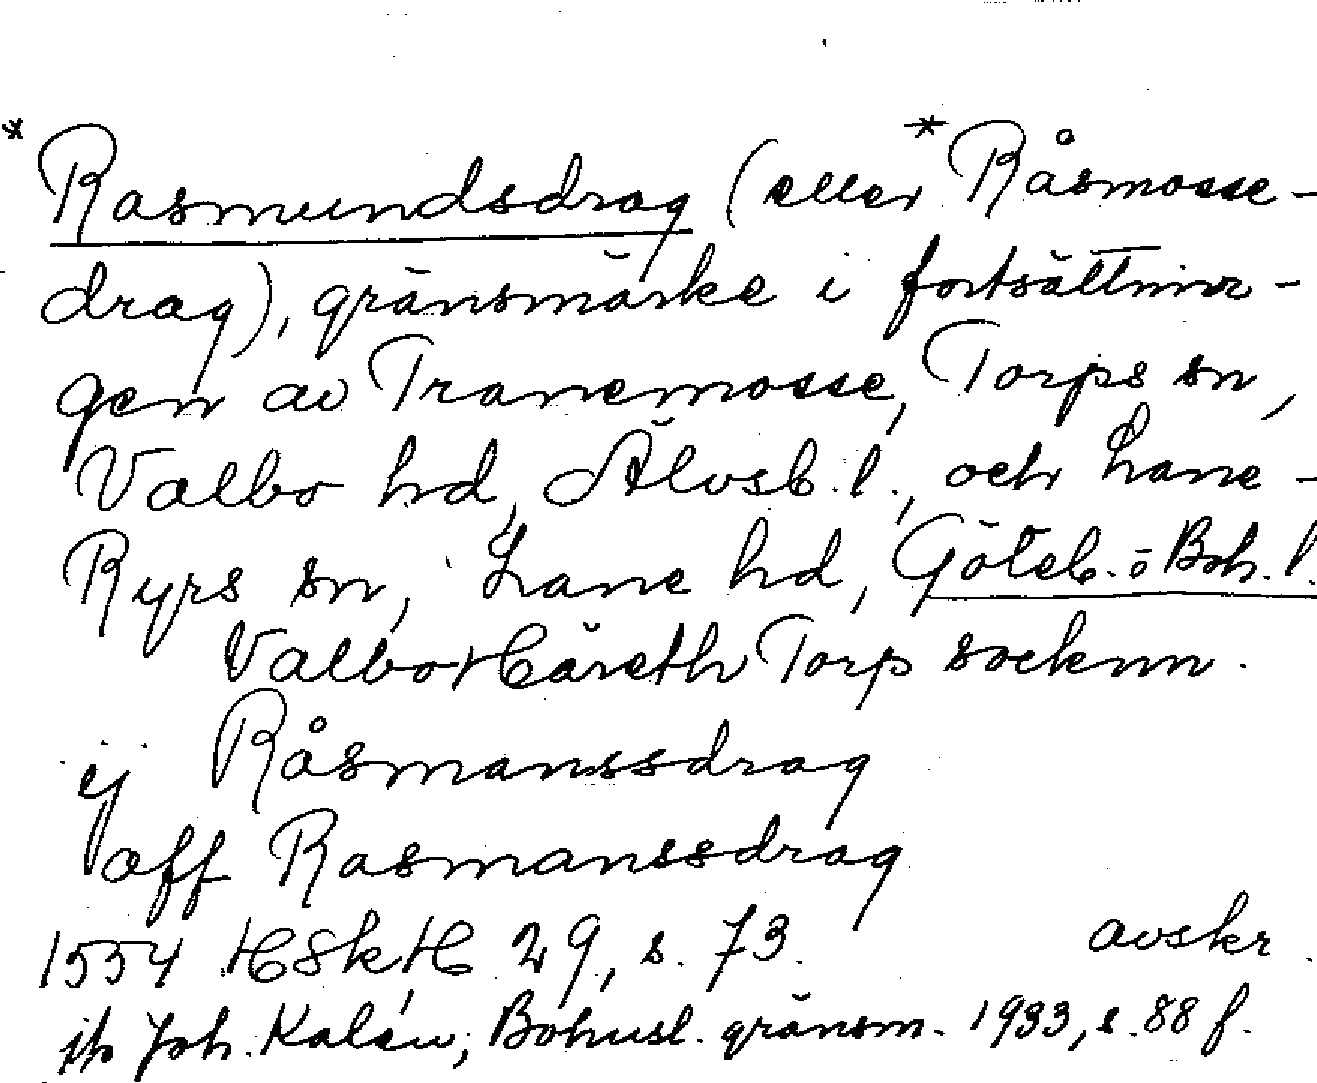 * Rasmundsdrag (eller * Råsmosse-
drag), gränsmärke i fortsättnin-
gen av Tranemosse, Torps sn,
Valbo hd, Älvsb. l., och Lane-
Ryrs sn, Lane hd, Göteb. o Boh. l.
Valbo Häreth Torp socknn.
ij Råsmanssdrag
aff Rasmanssdrag
1554 HSkH 29, s. 73. avskr.
jfr Joh. Kalén, Bohusl. gränsm. 1933, s. 88 f.